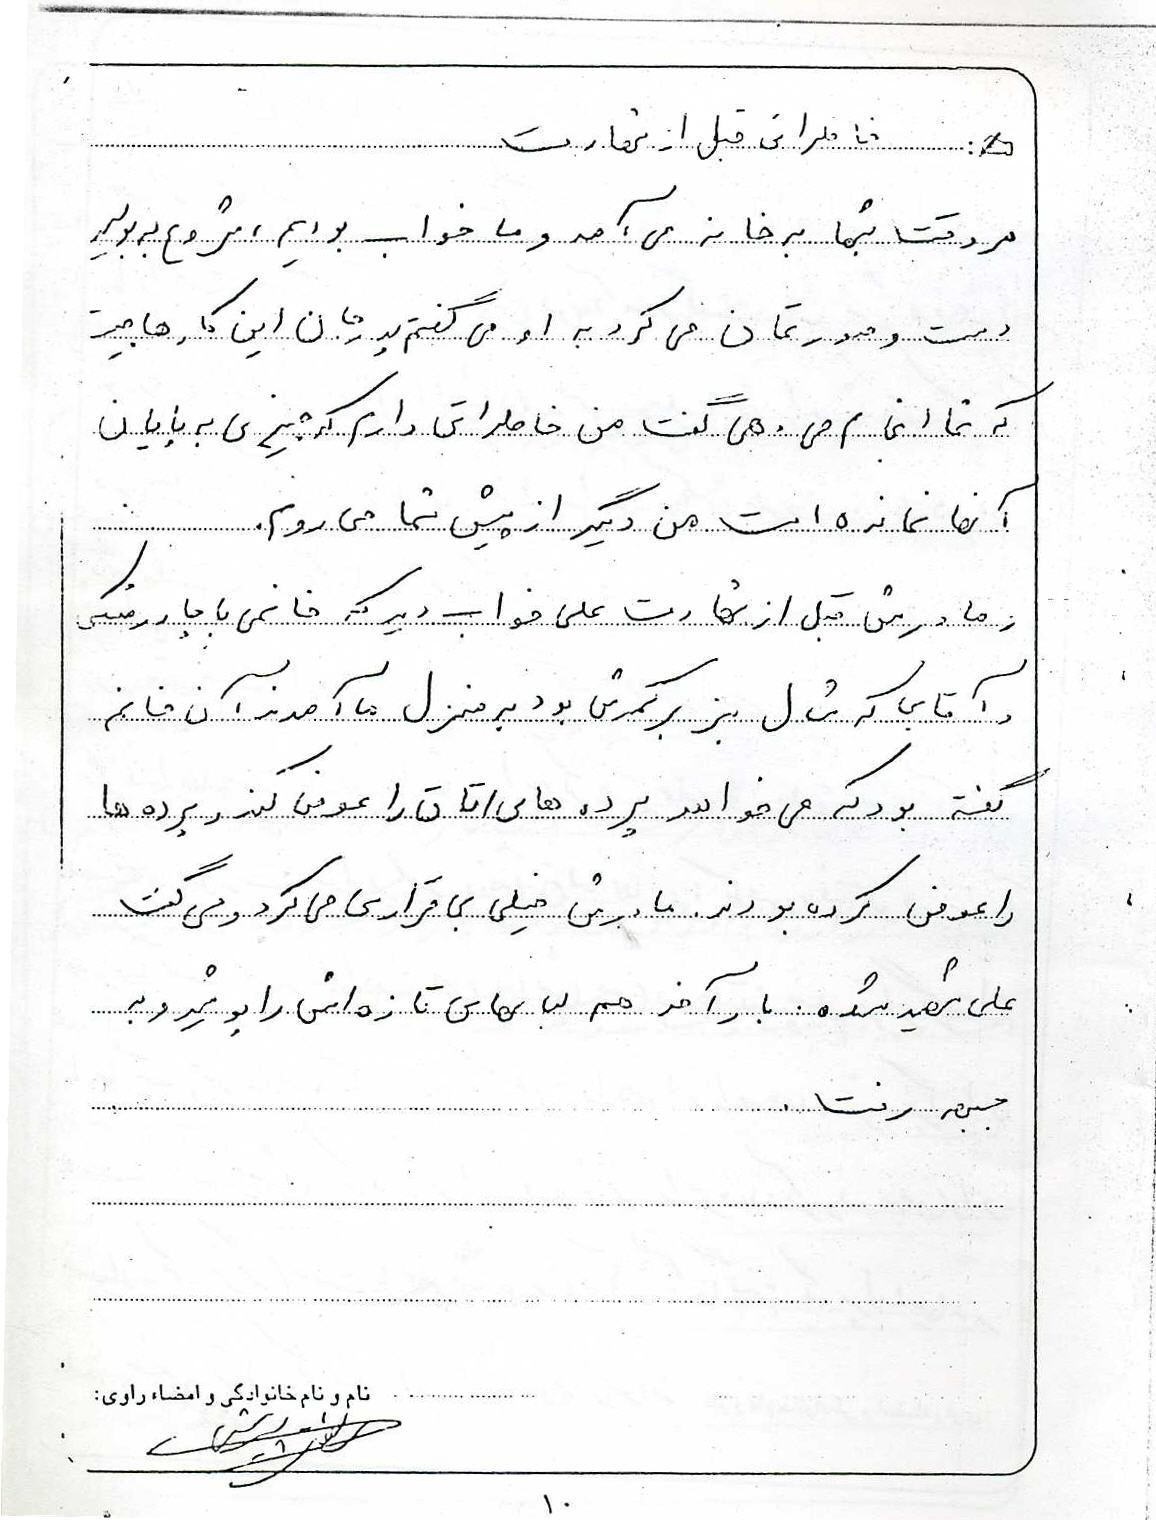 خاطراتی قبل از شهادت
هر وقت شبها به خانه می آمد و ما خواب بودیم ، شروع به بوسیدن
دست و صورتمان می کرد به او می گفتم پدر جان این کارها چیست
که شما انجام می دهی گفت من خاطراتی دارم که چیزی به پایان
آنها نمانده است من دیگر از پیش شما می روم .
مادرش قبل از شهادت علی خواب دید که خانمی با چادر مشکی
و آقایی که شال سبز بر کمرش بود به منزل ما آمدند آن خانم
گفته بود که می خواهد پرده های اتاق را عوض کند و پرده ها
را عوض کرده بودند . مادرش خیلی بی قراری می کرد و می گفت
علی شهید شده . بار آخر هم لباسهای تازه اش را پوشید و به
جبهه رفت .
نام و نام خانوادگی و امضاء راوی:
۱۰